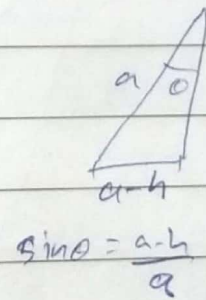 a
θ
a-h
sinθ = a-h
a